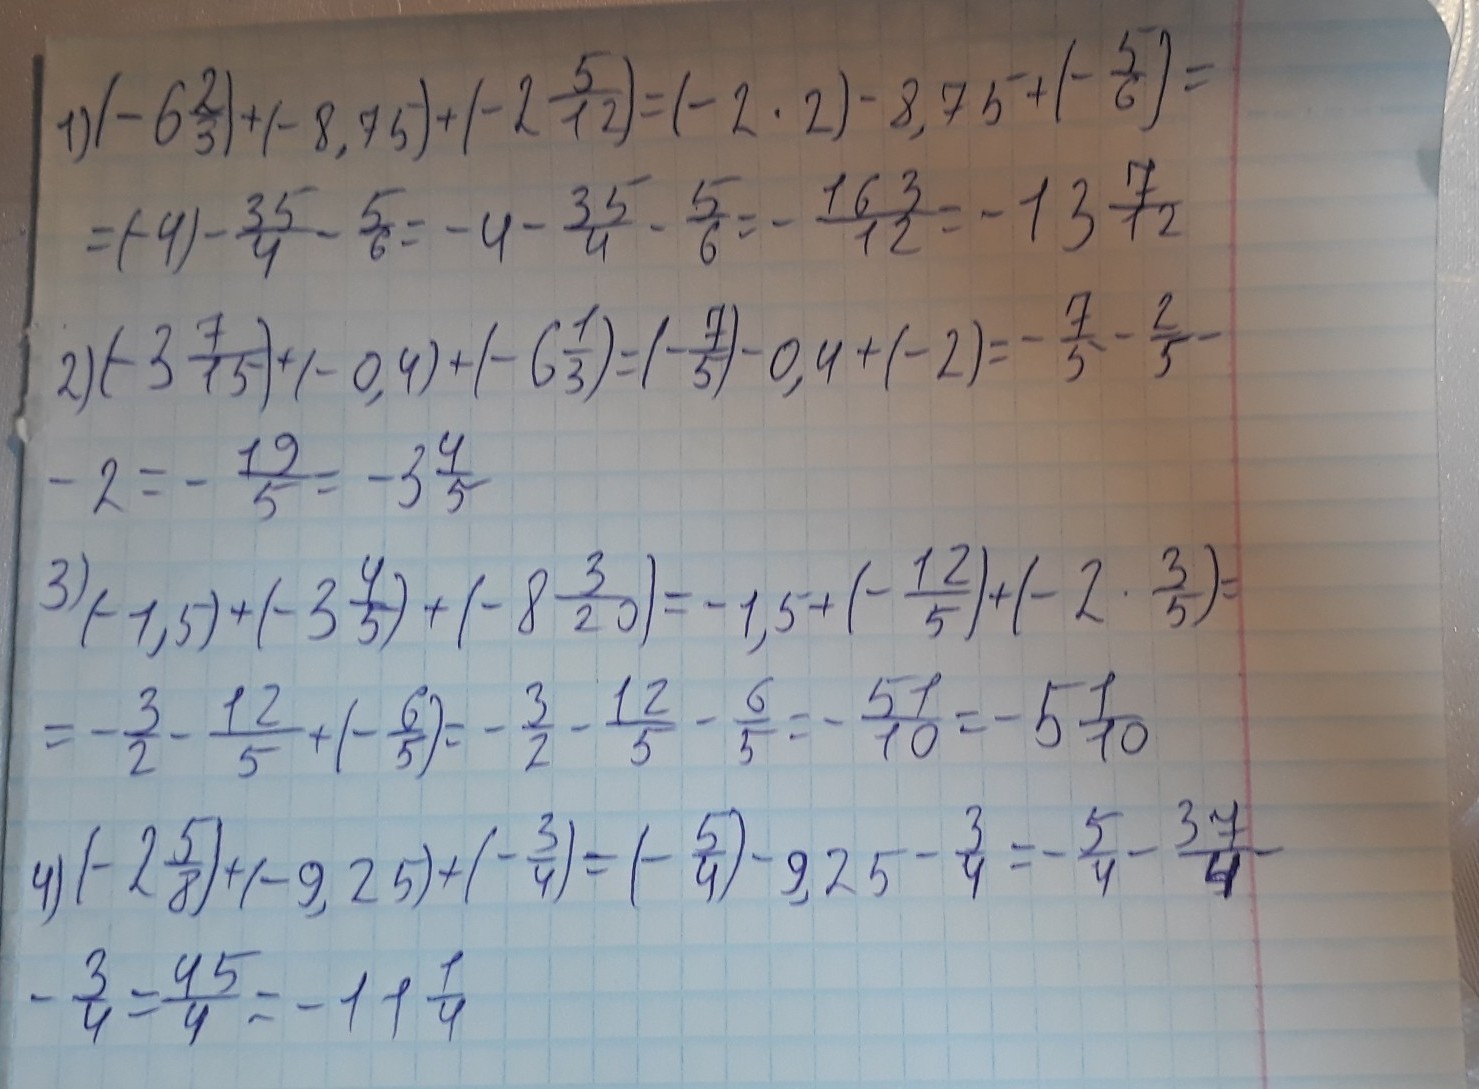 1) (-6 2/3) + (-8,75) + (-2 5/12) = (-2 · 2) - 8,75 + (-5/6) =
= (-4) - 35/4 - 5/6 = -4 - 35/4 - 5/6 = - 163/12 = -13 7/12
2) (-3 7/15) + (-0,4) + (-6 1/3) = (-7/5) - 0,4 + (-2) = - 7/5 - 2/5 -
- 2 = - 19/5 = -3 4/5
3) (-1,5) + (-3 4/5) + (-8 3/20) = -1,5 + (-12/5) + (-2 · 3/5) =
= - 3/2 - 12/5 + (-6/5) = - 3/2 - 12/5 - 6/5 = - 51/10 = -5 1/10
4) (-2 5/8) + (-9,25) + (-3/4) = (-5/4) - 9,25 - 3/4 = - 5/4 - 37/4 -
- 3/4 = 45/4 = -11 1/4